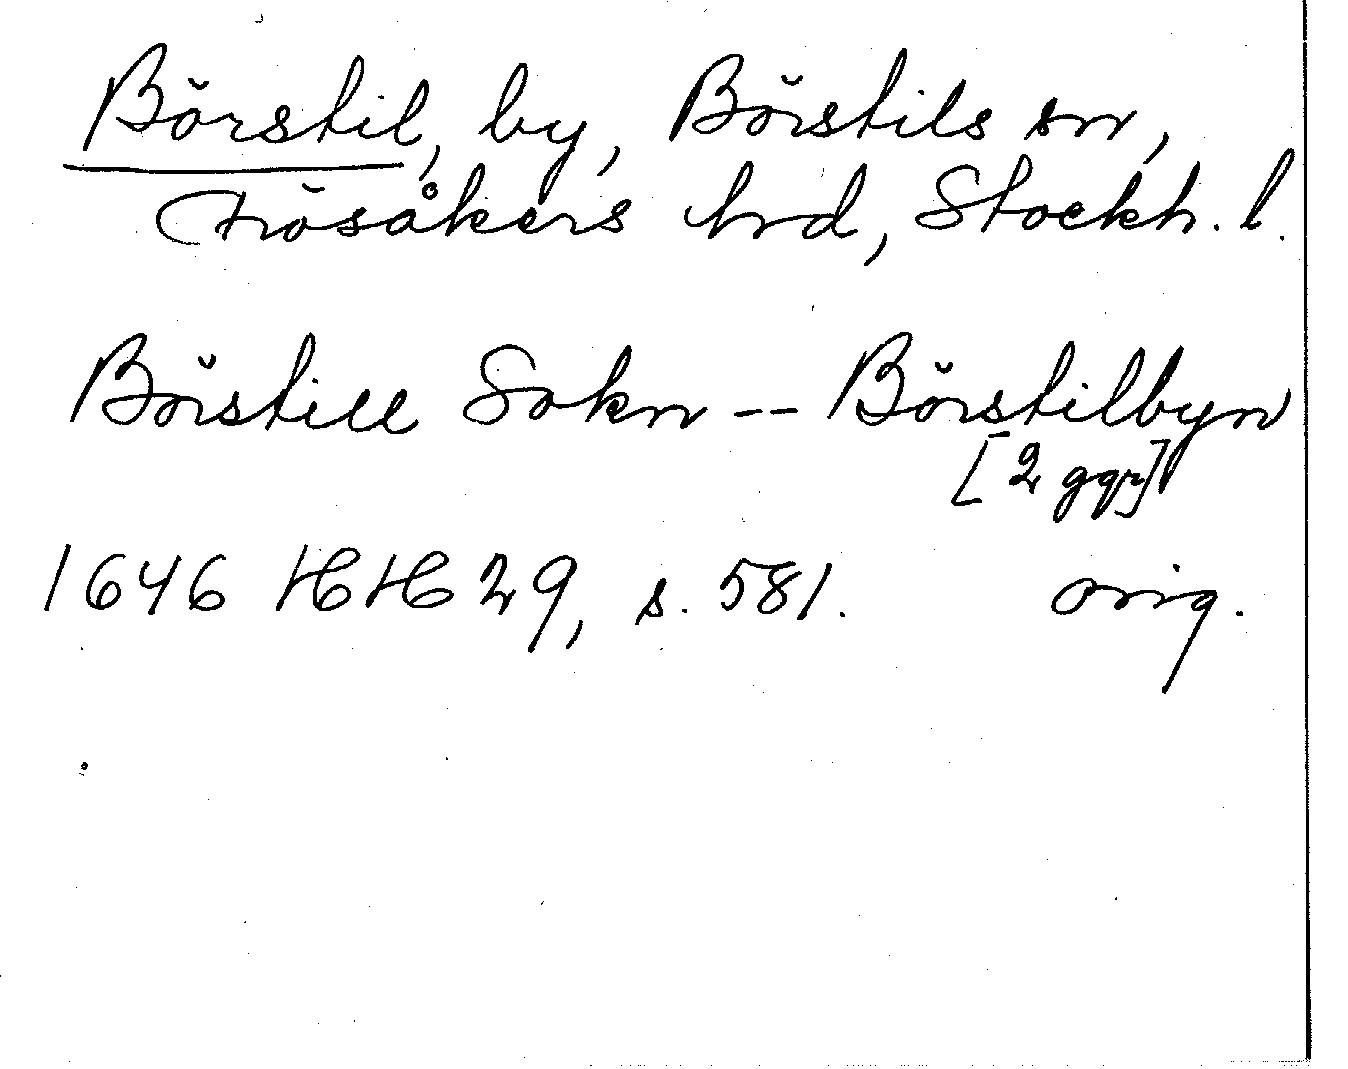 Börstil, by, Börstils sn,
Frösåkers hrd, Stockh. l.
Börstill Sokn -- Börstilbyn
[2 ggr]
1646 HH 29, s. 581. orig.